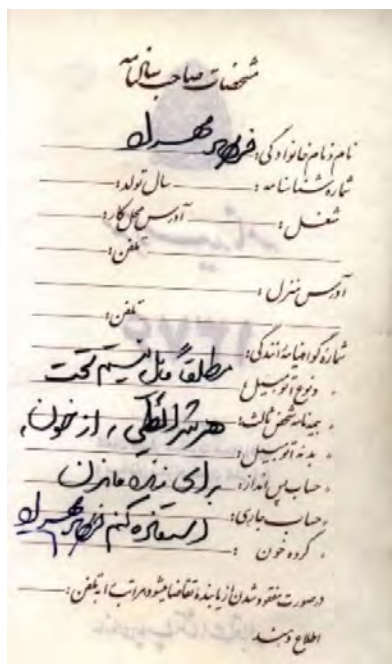 مشخصات صاحب سالنامه
نام و نام خانوادگی: فریدون مهران
شماره شناسنامه: سال تولد:
شغل: آدرس محل کار:
تلفن:
آدرس منزل:
تلفن:
شماره گواهینامه رانندگی:
مطلقاً مایل نیستم تحت
نوع اتومبیل:
بیمه نامه شخص ثالث:
هر شرائطی، از خون
بدنه اتومبیل:
حساب پس انداز: برای زنده ماندن
حساب جاری:
استفاده کنم
گروه خون:
درصورت مفقود شدن از یابنده تقاضا میشود مراتب را به تلفن:
اطلاع دهند